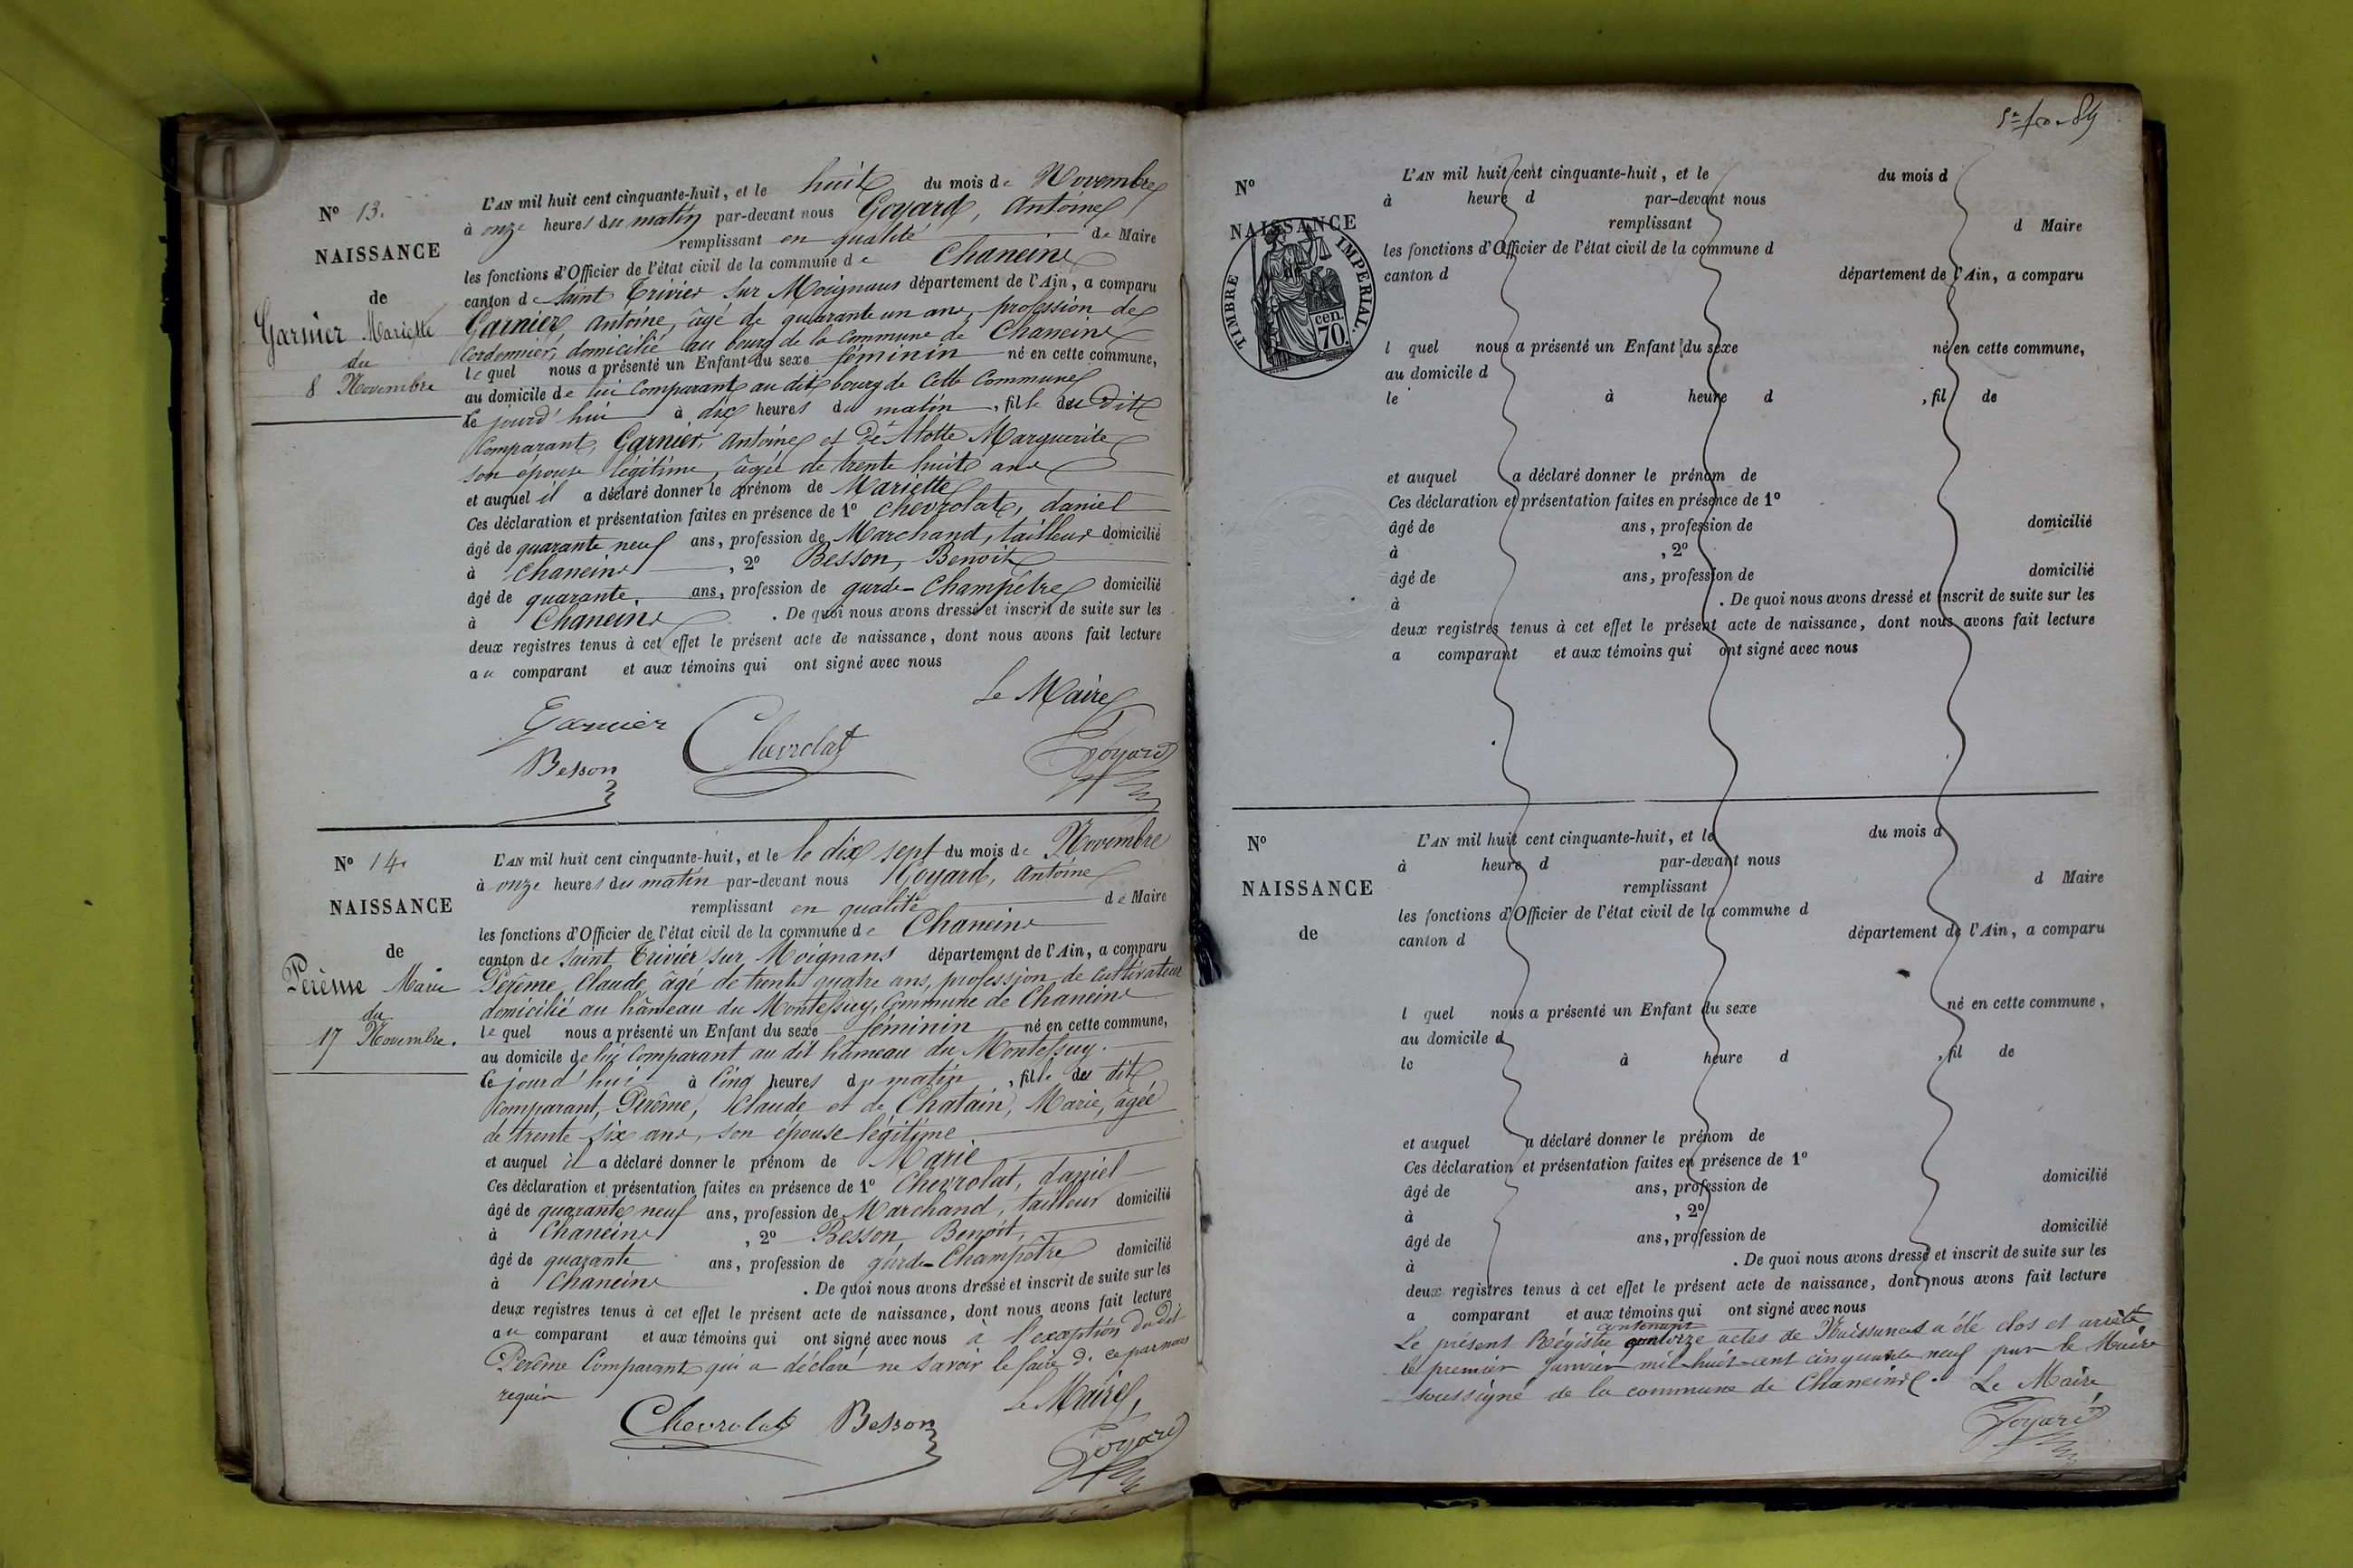 N° 13.
NAISSANCE
de
Garnier Mariette
du
8 Novembre
L'AN mil huit cent cinquante-huit, et le huit du mois de Novembre
à onze heures du matin par-devant nous Goyard, Antoine
remplissant en qualité de Maire
les fonctions d'Officier de l'état civil de la commune de Chaneins
canton de Saint Trivier sur Moignans département de l'Ain, a comparu
Garnier, Antoine, âgé de quarante un ans, profession de
Cordonnier, domicilié au bourg de la Commune de Chaneins
lequel nous a présenté un Enfant du sexe féminin né en cette commune,
au domicile de lui Comparant au dit bourg de Cette Commune
Ce jourd'hui à dix heures du matin, fille du dit
Comparant, Garnier, Antoine et de Alotte Marguerite
son épouse légitime, âgée de trente huit ans
et auquel il a déclaré donner le prénom de Mariette
Ces déclaration et présentation faites en présence de 1° Chevrolat, daniel
âgé de quarante neuf ans, profession de Marchand, tailleur domicilié
à Chaneins, 2° Besson, Benoit
âgé de quarante. ans, profession de garde-Champêtre domicilié
à Chaneins. De quoi nous avons dressé et inscrit de suite sur les
deux registres tenus à cet effet le présent acte de naissance, dont nous avons fait lecture
au comparant et aux témoins qui ont signé avec nous
Le Maire
Garnier Chevrolat Goyard
Besson
N° 14.
NAISSANCE
de
Perême Marie
du
17 Novembre.
L'AN mil huit cent cinquante-huit, et le le dix sept du mois de Novembre
à onze heures du matin par-devant nous Goyard, Antoine
remplissant en qualité de Maire
les fonctions d'Officier de l'état civil de la commune de Chaneins
canton de Saint Trivier sur Moignans département de l'Ain, a comparu
Perême, Claude, âgé de trente quatre ans, profession de Cultivateur
domicilié au hâmeau du Montessuy, Commune de Chaneins
lequel nous a présenté un Enfant du sexe féminin né en cette commune,
au domicile de lui Comparant au dit hâmeau du Montessuy.
Ce jourd'hui à Cinq heures du matin, fille du dit
Comparant, Perême, Claude et de Chatain, Marie, âgée
de trente six ans, son épouse légitime
et auquel il a déclaré donner le prénom de Marie
Ces déclaration et présentation faites en présence de 1° Chevrolat, daniel
âgé de quarante neuf ans, profession de Marchand, tailleur domicilié
à Chaneins, 2° Besson, Benoit,
âgé de quarante ans, profession de garde-Champêtre domicilié
à Chaneins. De quoi nous avons dressé et inscrit de suite sur les
deux registres tenus à cet effet le présent acte de naissance, dont nous avons fait lecture
au comparant et aux témoins qui ont signé avec nous à l'exception du dit
Perême Comparant qui a déclaré ne savoir le faire de ce par nous
requis
Le Maire,
Chevrolat Besson Goyard
N°
NAISSANCE
TIMBRE IMPERIAL.
cen.
70.
L'AN mil huit cent cinquante-huit, et le du mois d
à heure d par-devant nous
remplissant d Maire
les fonctions d'Officier de l'état civil de la commune d
canton d département de l'Ain, a comparu
l quel nous a présenté un Enfant du sexe né en cette commune,
au domicile d
le à heure d, fil de
et auquel a déclaré donner le prénom de
Ces déclaration et présentation faites en présence de 1°
âgé de ans, profession de domicilié
à, 2°
âgé de ans, profession de domicilié
à. De quoi nous avons dressé et inscrit de suite sur les
deux registres tenus à cet effet le présent acte de naissance, dont nous avons fait lecture
a comparant et aux témoins qui ont signé avec nous
N°
NAISSANCE
de
L'AN mil huit cent cinquante-huit, et le du mois d
à heure d par-devant nous
remplissant d Maire
les fonctions d'Officier de l'état civil de la commune d
canton d département de l'Ain, a comparu
l quel nous a présenté un Enfant du sexe né en cette commune,
au domicile d
le à heure d, fil de
et auquel a déclaré donner le prénom de
Ces déclaration et présentation faites en présence de 1°
âgé de ans, profession de domicilié
à, 2°
âgé de ans, profession de domicilié
à. De quoi nous avons dressé et inscrit de suite sur les
deux registres tenus à cet effet le présent acte de naissance, dont nous avons fait lecture
a comparant et aux témoins qui ont signé avec nous
contenant
Le présent Régistre quatorze actes de Naissances a été clos et arrêté
le premier Janvier mil-huit-cent cinquante neuf par le Maire
soussigné de la commune de Chaneins. Le Maire
Goyard